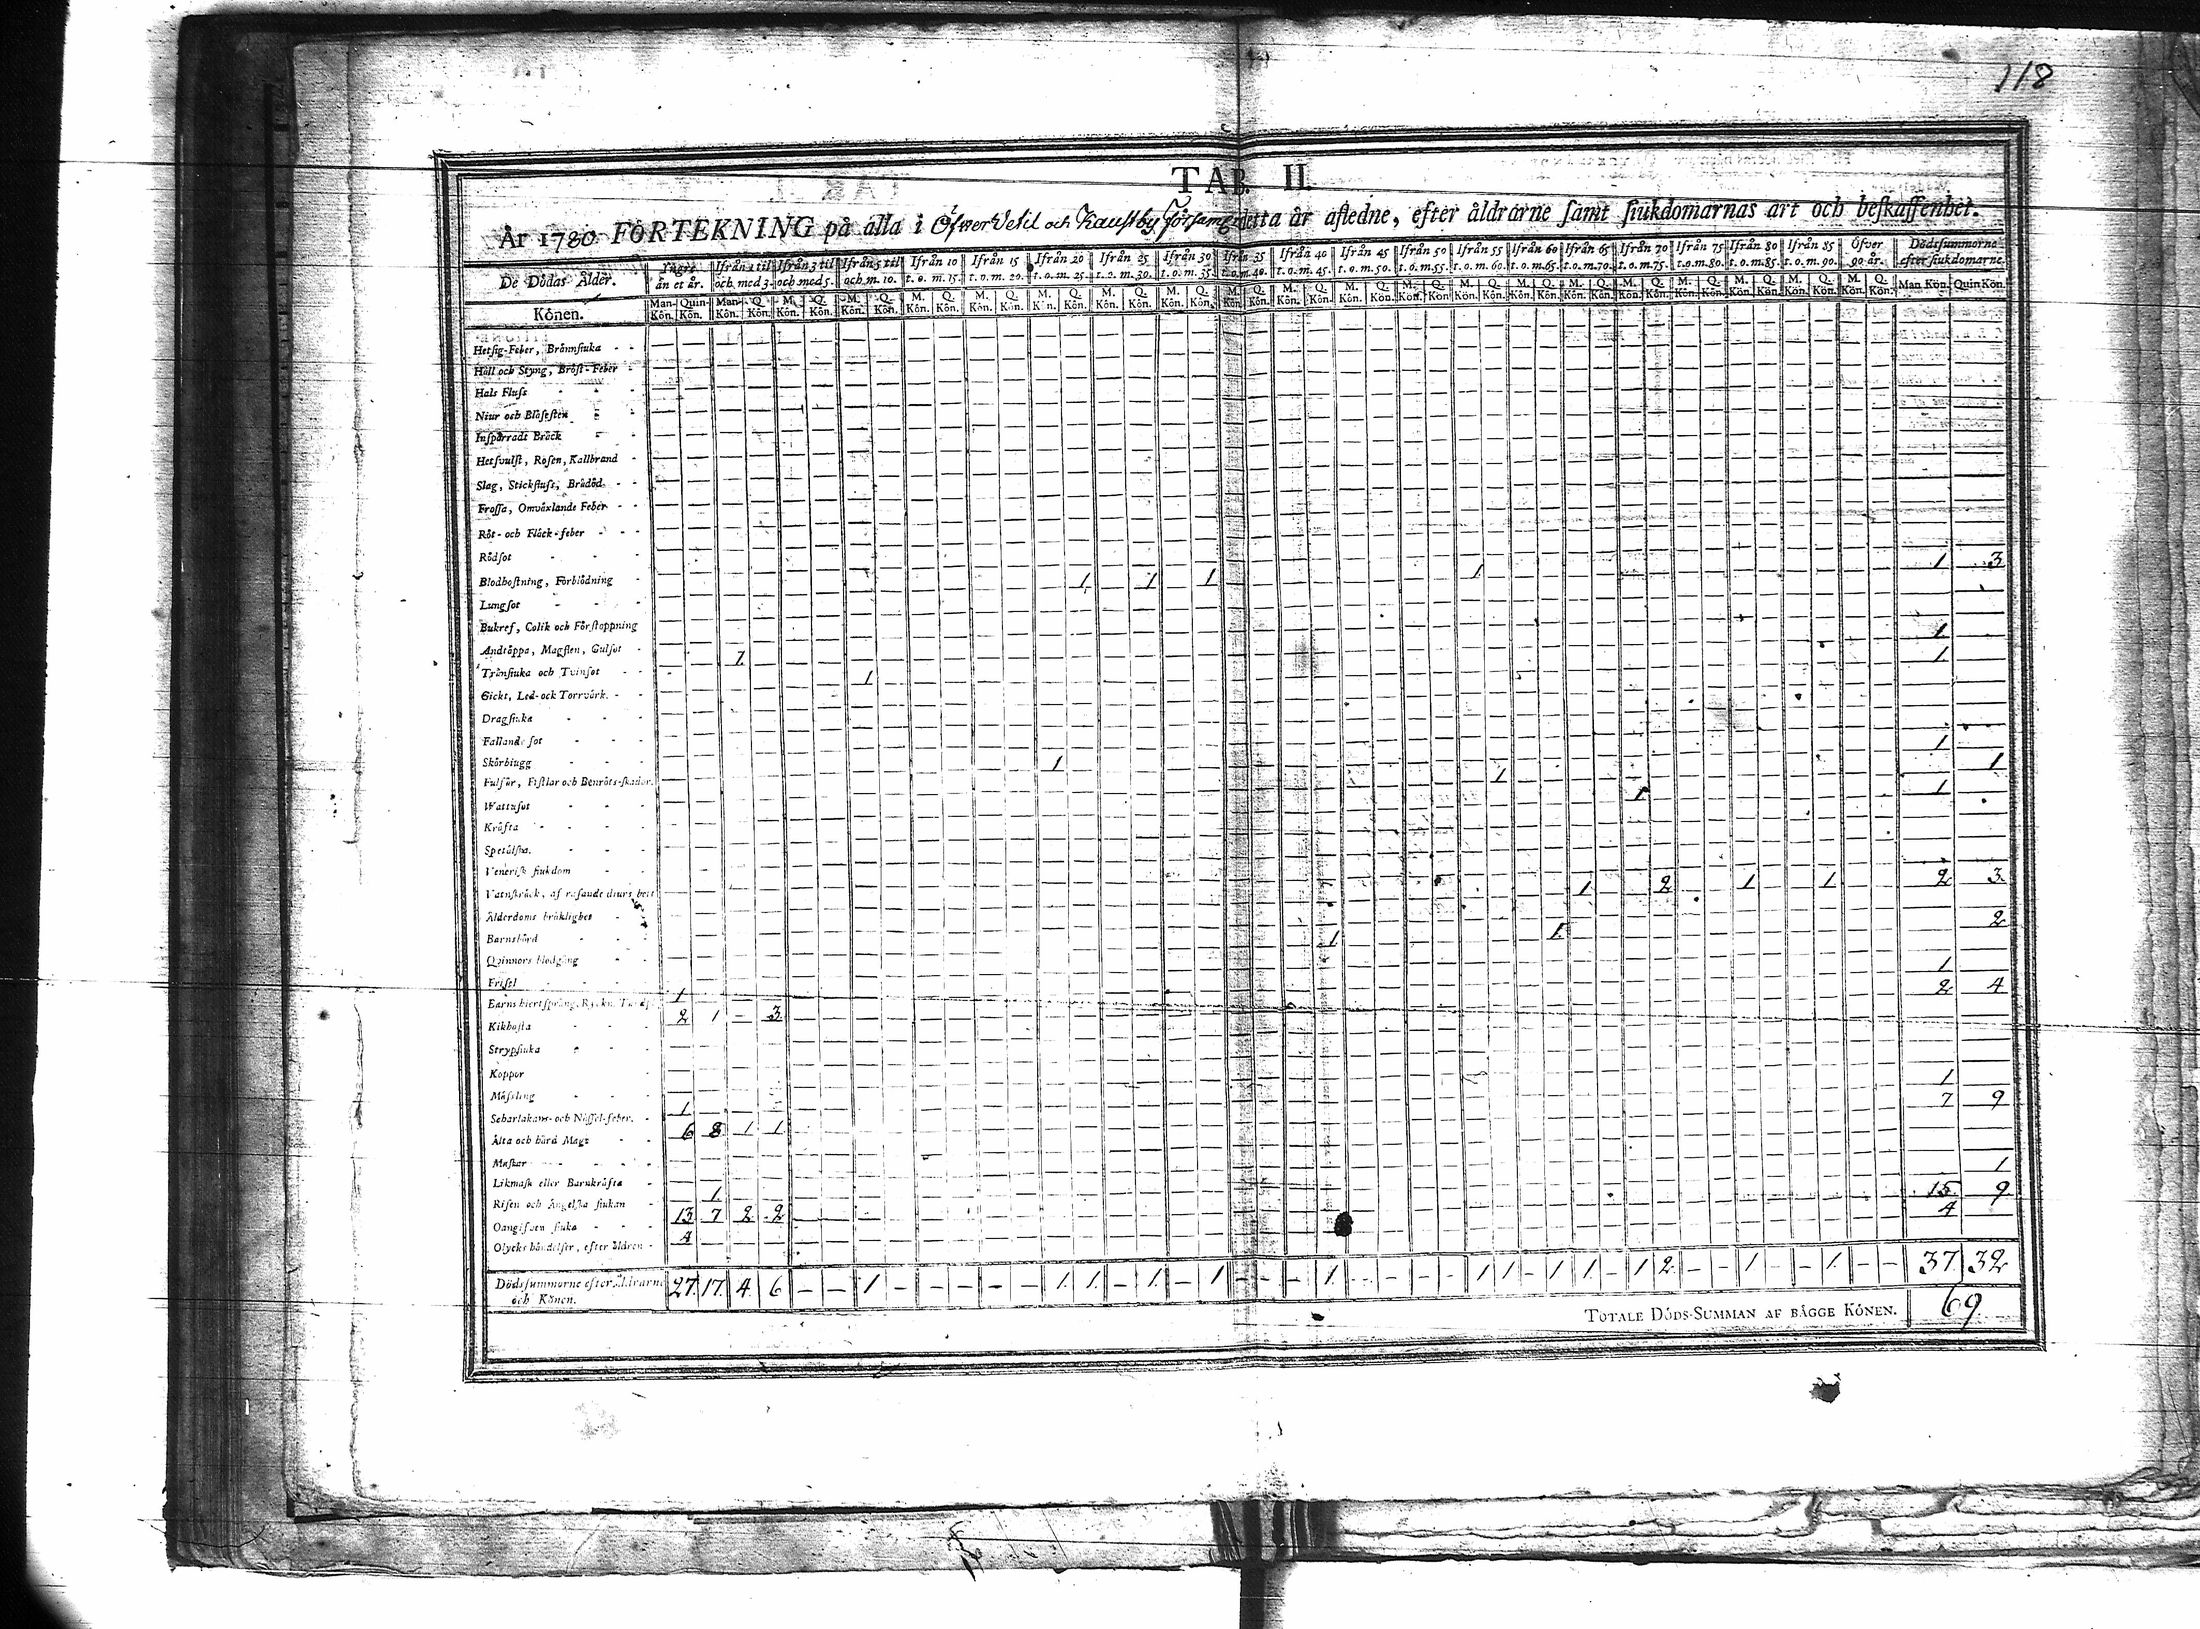 118
TAB. II.
År 1780 FÖRTEKNING på alla i Öfwer Vetil och Kaustby Församl. detta år afledne, efter åldrarne samt siukdomarnas art och beskaffenhet.
De Dödas Ålder. Yngre än et år. Ifrån 1 til och med 3. Ifrån 3 til och med 5. Ifrån 5 til och m. 10. Ifrån 10 t. o. m. 15. Ifrån 15 t. o. m. 20. Ifrån 20 t. o. m. 25. Ifrån 25 t. o. m. 30. Ifrån 30 t. o. m. 35. Ifrån 35 t. o. m. 40. Ifrån 40 t. o. m. 45. Ifrån 45 t. o. m. 50. Ifrån 50 t. o. m. 55. Ifrån 55 t. o. m. 60. Ifrån 60 t. o. m. 65. Ifrån 65 t. o. m. 70. Ifrån 70 t. o. m. 75. Ifrån 75 t. o. m. 80. Ifrån 80 t. o. m. 85. Ifrån 85 t. o. m. 90. Öfver 90 år. Dödssummorne efter siukdomarne.
Könen. Man-Kön. Quin-Kön. Man-Kön. Q. Kön. M. Kön. Q. Kön. M. Kön. Q. Kön. M. Kön. Q. Kön. M. Kön. Q. Kön. M. Kön. Q. Kön. M. Kön. Q. Kön. M. Kön. Q. Kön. M. Kön. Q. Kön. M. Kön. Q. Kön. M. Kön. Q. Kön. M. Kön. Q. Kön. M. Kön. Q. Kön. M. Kön. Q. Kön. M. Kön. Q. Kön. M. Kön. Q. Kön. M. Kön. Q. Kön. M. Kön. Q. Kön. M. Kön. Q. Kön. M. Kön. Q. Kön. Man Kön. Quin Kön.
Hetsig-Feber, Brännsiuka
Håll och Styng, Bröst-Feber
Hals Fluss
Niur och Blåsesten
Inspärradt Bråck
Hetsvulst, Rosen, Kallbrand
Slag, Stickfluss, Brådöd
Frossa, Omväxlande Feber
Röt- och Fläck-feber
Rödsot
Blodhostning, Förblödning 1 1 1 1 1 3
Lungsot
Bukref, Colik och Förstoppning
Andtäppa, Magsten, Gulsot 1 1
Trånsiuka och Tvinsot 1 1
Gickt, Led- ock Torrvärk
Dragsiuka
Fallande sot
Skörbiugg 1 1
Fulsår, Fistlar och Benröts-skador 1 1
Wattusot 1 1
Kräfta
Spetälska
Venerisk siukdom
Vatnskräck, af rasande diurs bett 1 2 1 1 2 3
Ålderdoms bräklighet
Barnsbörd 1 1 2
Qvinnors blodgång
Frisel 1 1
Barns hiertsprång, Ryckn. 2 1 3 2 4
Kikhosta
Strypsiuka
Koppor
Mässling 1 1
Scharlakans- och Nässel-feber 6 8 1 1 7 9
Älta och hård Mage
Maskar
Likmask eller Barnkräfta 1 1
Risen och Ängelska siukan 13 7 2 2 15 9
Oangifven siuka 4 4
Olycks händelser, efter åldren
Dödssummorne efter åldrarne och Könen. 27 17 4 6 — — 1 — — — — — 1 1 — 1 — 1 — — — 1 — — — — 1 1 — 1 1 — 1 2 — — 1 — — 1 — — 37 32
TOTALE DÖDS-SUMMAN AF BÄGGE KÖNEN. 69